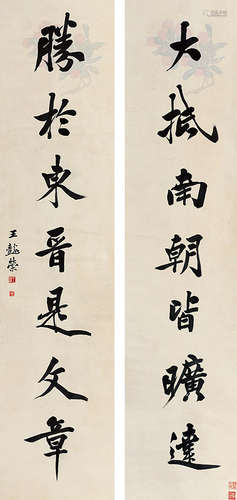 大抵南朝皆曠達
勝於東晉是文章
王懿榮